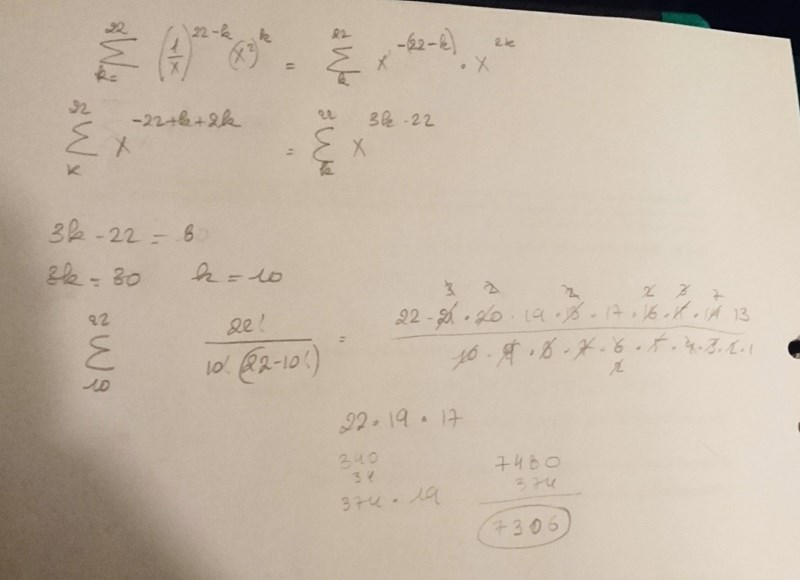 22 Σ k= (1/x)^22-k (x²)^k = 22 Σ k x^-(22-k) · x^2k
22 Σ k x^-22+k+2k = 22 Σ k x^3k-22
3k - 22 = 8
3k = 30 k = 10
22 Σ 10 22! / 10! (22-10!) = 22 · 21 · 20 · 19 · 18 · 17 · 16 · 15 · 14 13 / 10 · 9 · 8 · 7 · 6 · 5 · 4 · 3 · 2 · 1
3 2 2 2 3 7
2
22 · 19 · 17
340
34
374 · 19
7480
374
7306